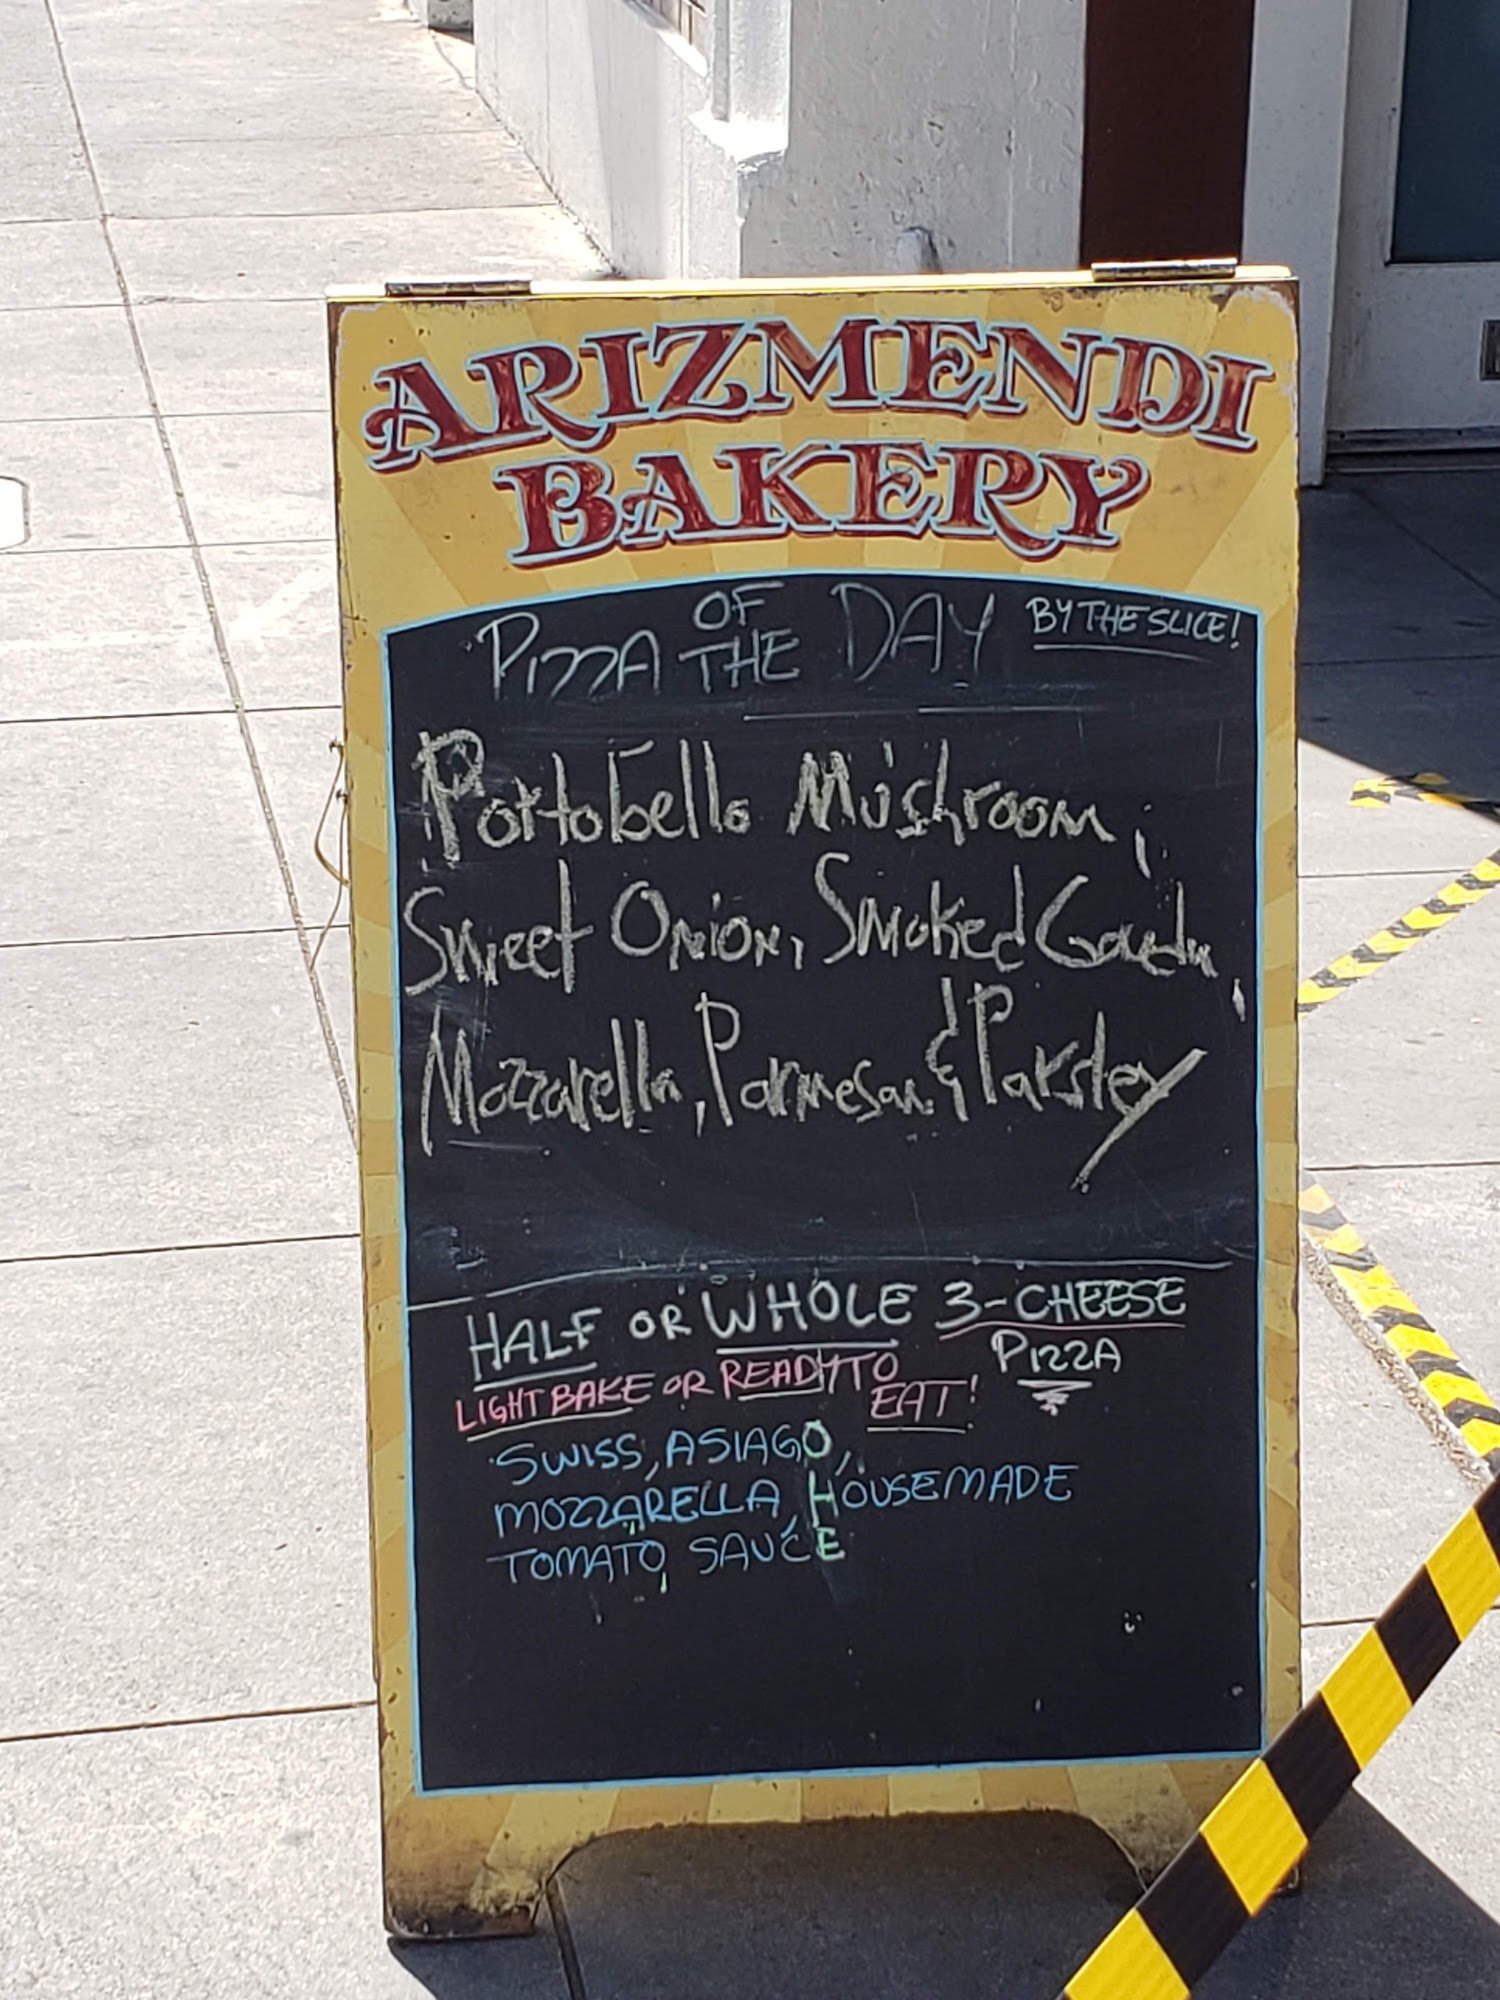 ARIZMENDI
BAKERY
PIZZA OF THE DAY BY THE SLICE!
Portobello Mushroom,
Sweet Onion, Smoked Gouda,
Mozzarella, Parmesan & Parsley
HALF OR WHOLE 3-CHEESE
PIZZA
LIGHT BAKE OR READY TO
EAT!
SWISS, ASIAGO,
MOZZARELLA, HOUSEMADE
TOMATO SAUCE